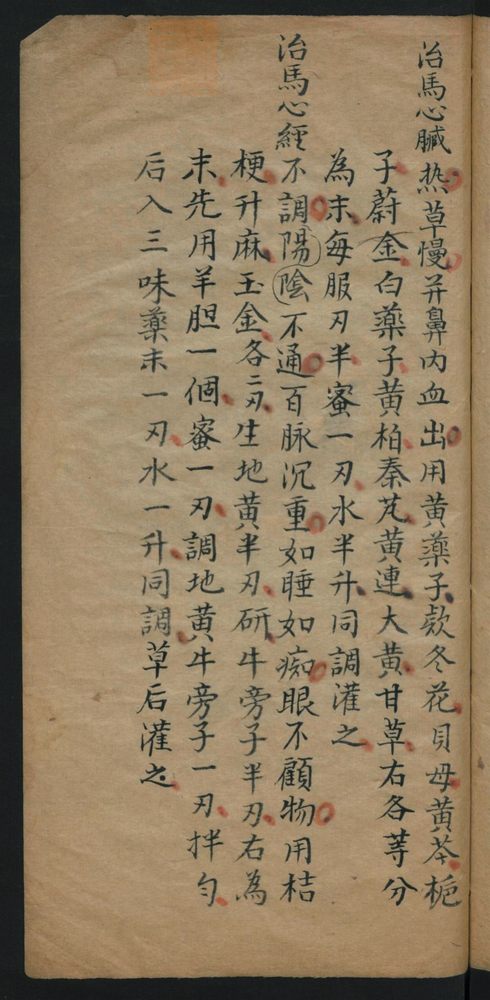 治馬心臟热草慢并鼻内血出用黄藥子款冬花貝母黄芩栀
子蔚金白藥子黄柏秦芃黄連大黄甘草右各等分
為末每服刃半蜜一刃水半升同調灌之
治馬心經不調陽陰不通百脉沉重如睡如痴眼不顧物用桔
梗升麻玉金各二刃生地黄半刃研牛旁子半刃右為
末先用羊胆一個蜜一刃調地黄牛旁子一刃拌匀
后入三味藥末一刃水一升同調草后灌之